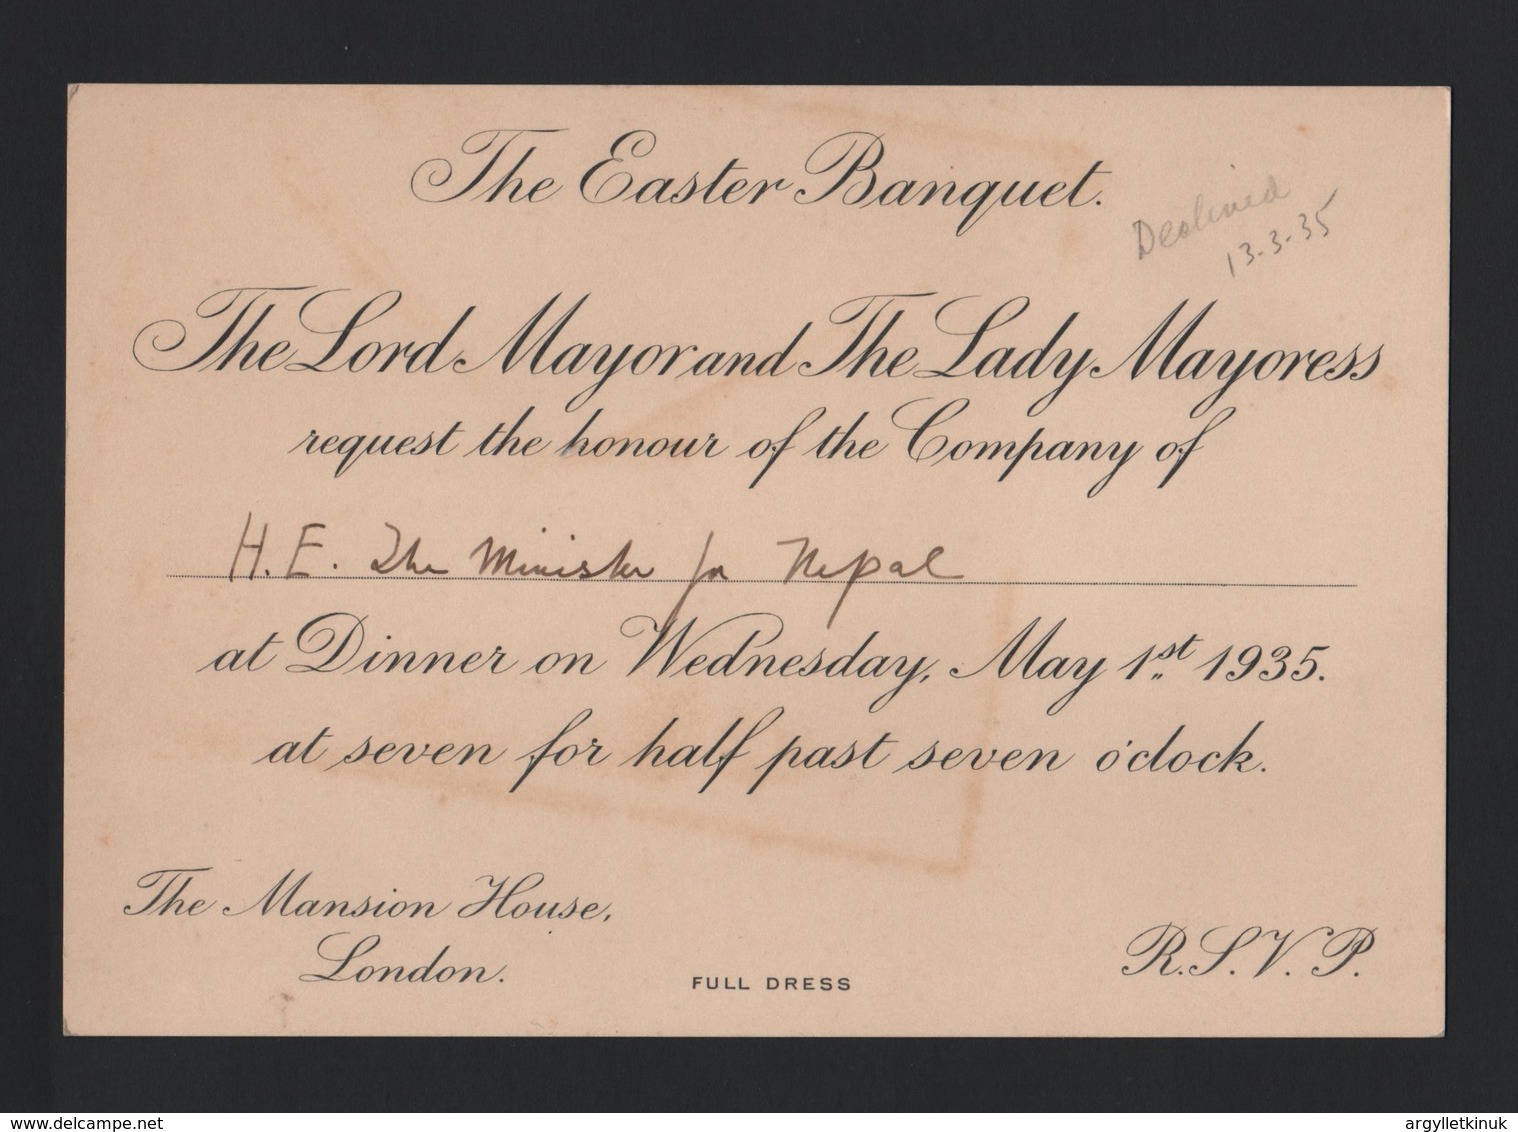 The Easter Banquet.
Declined
13-3-35
The Lord Mayor and The Lady Mayoress
request the honour of the Company of
H.E. The Minister for Nepal
at Dinner on Wednesday, May 1st 1935.
at seven for half past seven o'clock.
The Mansion House,
London.
FULL DRESS
R.S.V.P.
www.delcampe.net
argylletkinuk